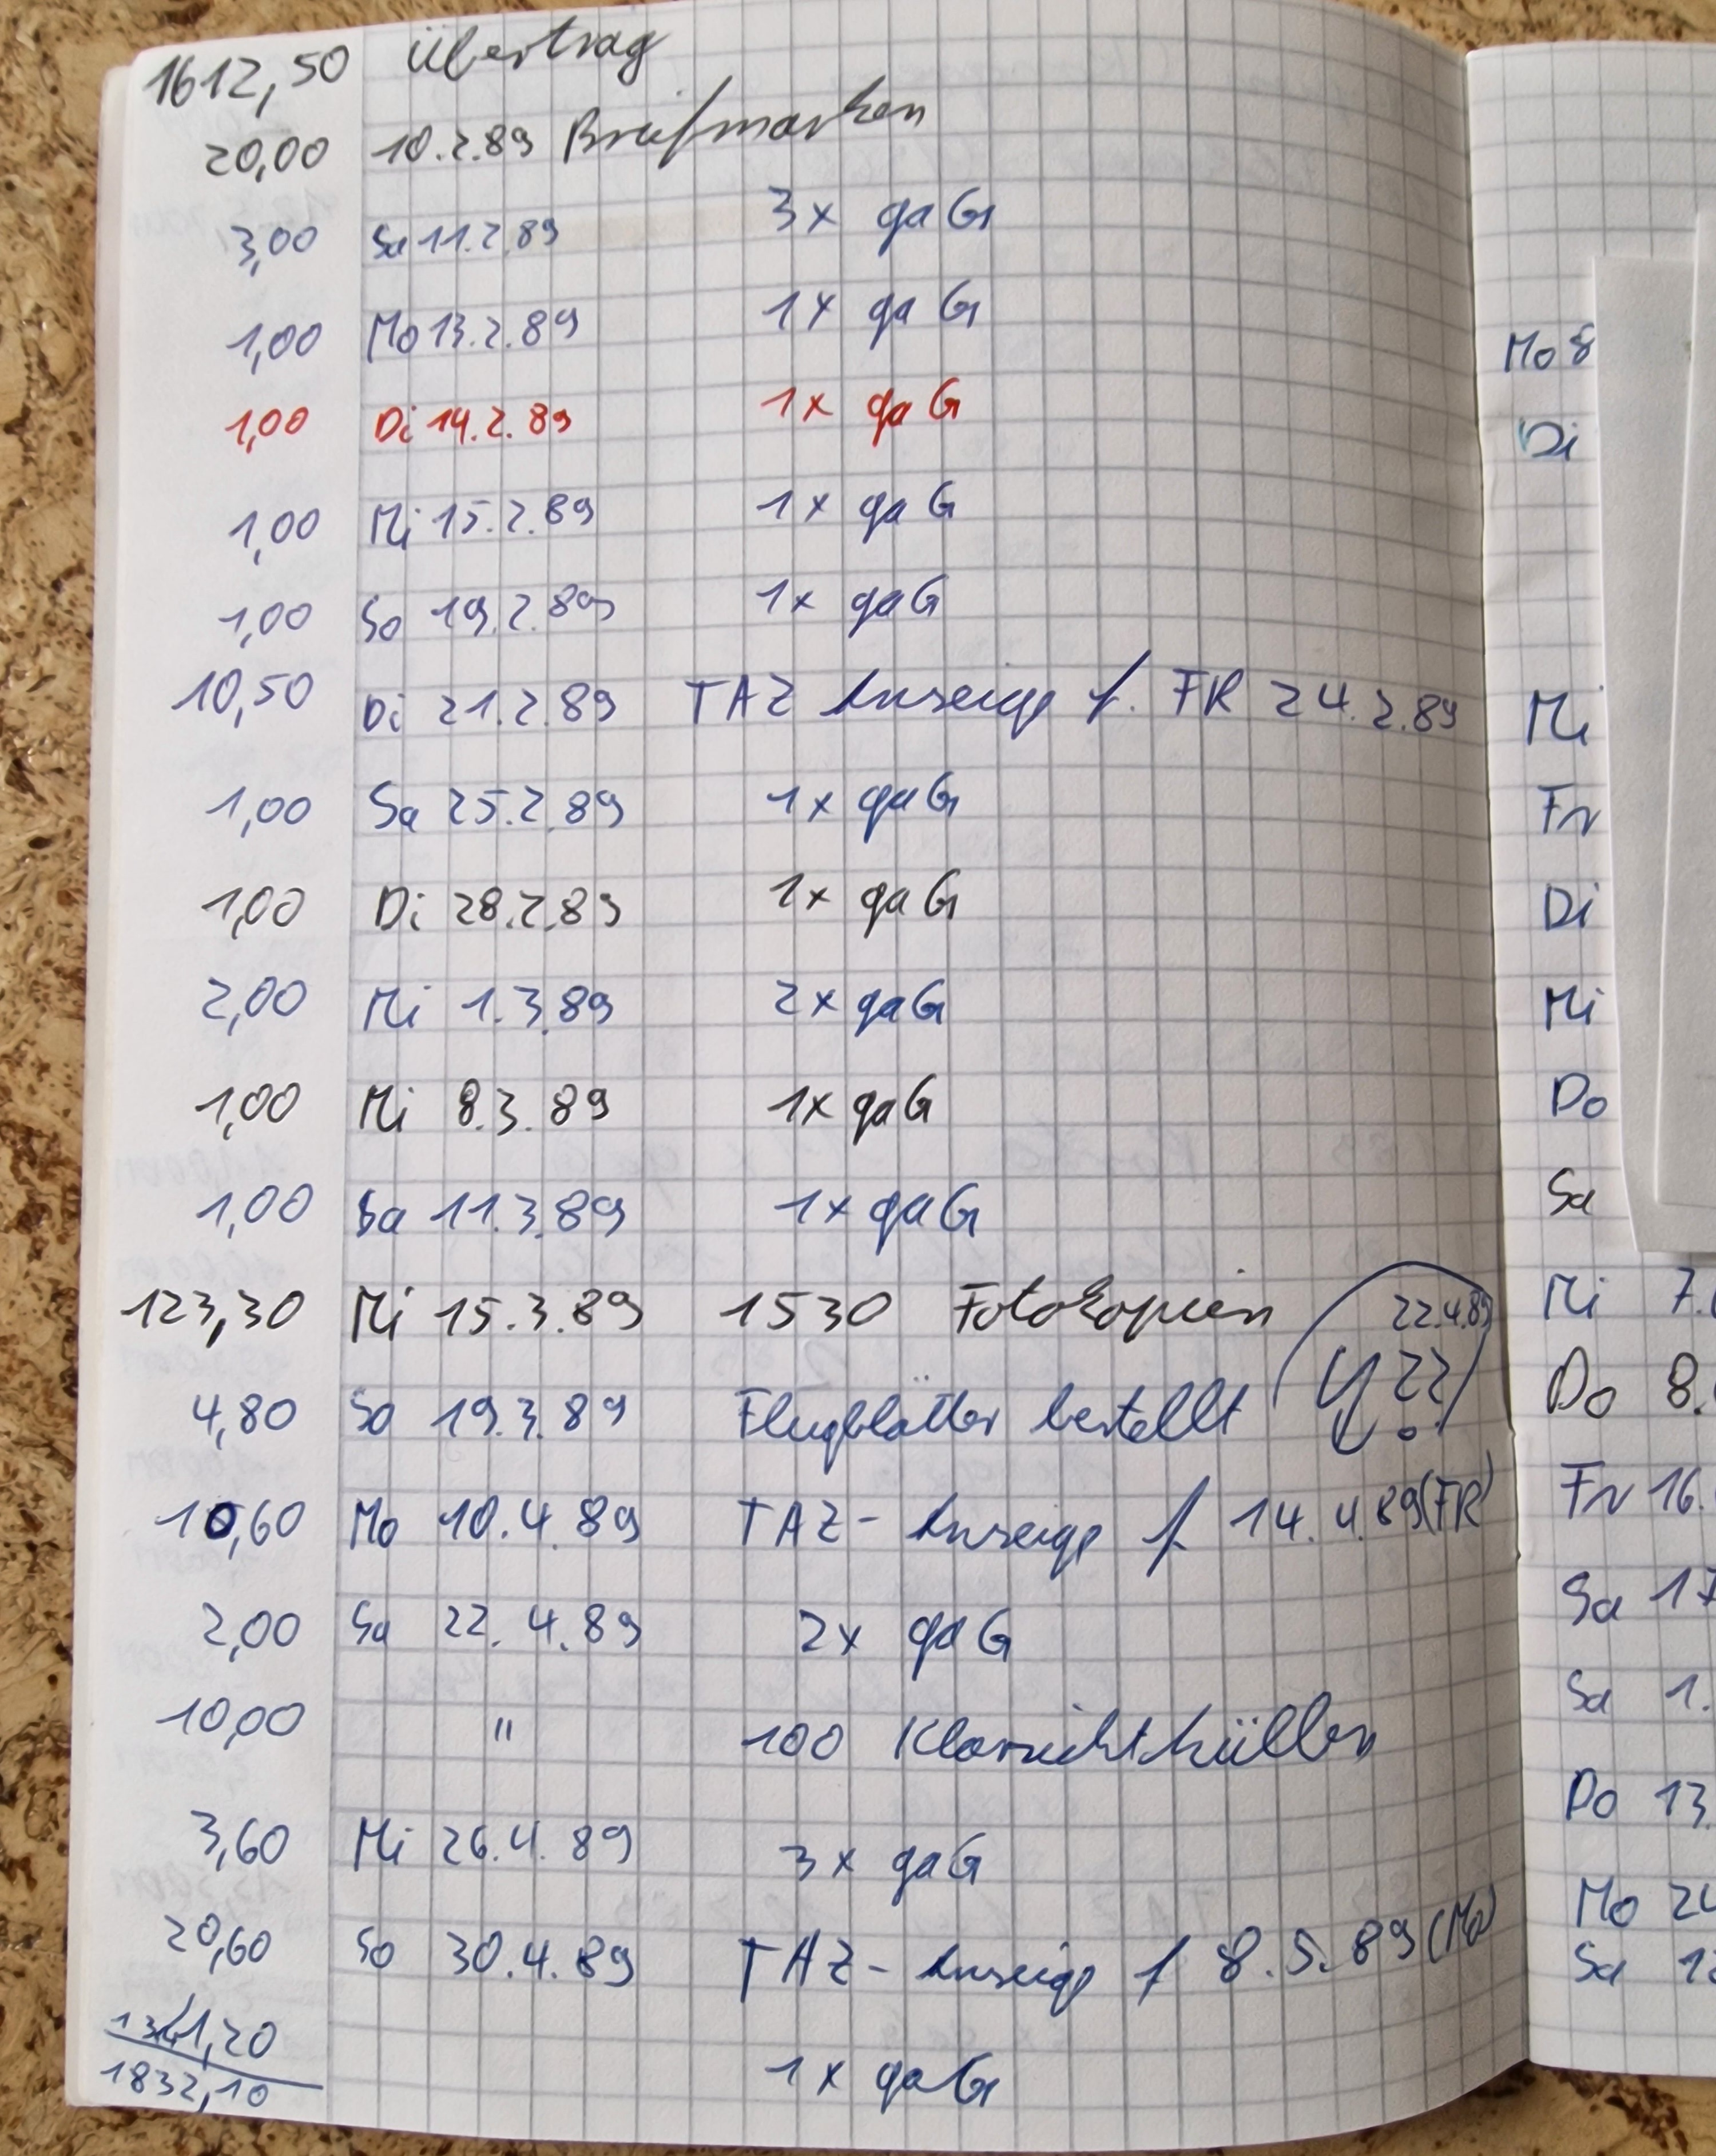 1612,50 Übertrag
20,00 10.2.89 Briefmarken
3,00 Sa 11.2.89 3x gaG
1,00 Mo 13.2.89 1x gaG
1,00 Di 14.2.89 1x gaG
1,00 Mi 15.2.89 1x gaG
1,00 So 19.2.89 1x gaG
10,50 Di 21.2.89 TAZ Anzeige f. FR 24.2.89
1,00 Sa 25.2.89 1x gaG
1,00 Di 28.2.89 1x gaG
2,00 Mi 1.3.89 2x gaG
1,00 Mi 8.3.89 1x gaG
1,00 Sa 11.3.89 1x gaG
123,30 Mi 15.3.89 1530 Fotokopien
22.4.89
4,80 So 19.3.89 Flugblätter bestellt
10,60 Mo 10.4.89 TAZ-Anzeige f. 14.4.89 (FR)
2,00 Sa 22.4.89 2x gaG
10,00 " 100 Klarsichthüllen
3,60 Mi 26.4.89 3x gaG
20,60 So 30.4.89 TAZ-Anzeige f 8.5.89 (Mo)
1,20 1x gaG
1832,10
Mo 8
Di
Mi
Fr
Di
Mi
Do
Sa
Mi 7.
Do 8.
Fr 16.
Sa 17
Sa 1.
Do 13.
Mo 24
Sa 12